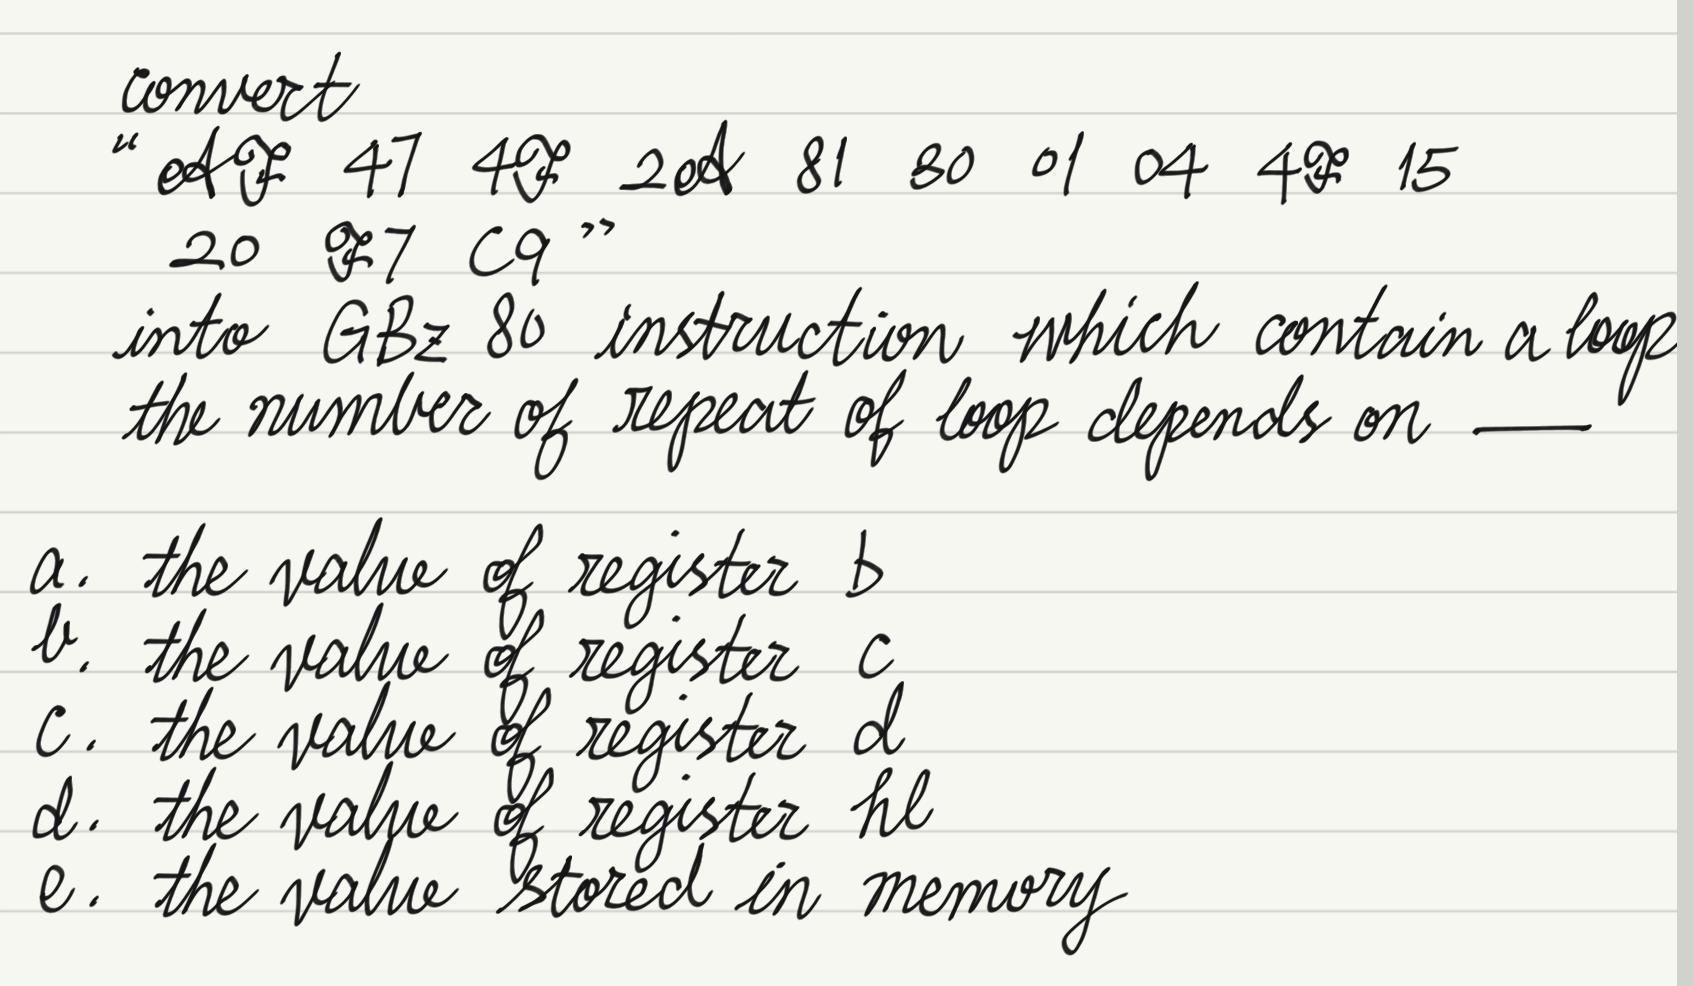 convert
“AF 47 4F 2A 81 30 01 04 4F 15
20 F7 C9”
into GBz 80 instruction which contain a loop
the number of repeat of loop depends on ___
a. the value of register b
b. the value of register c
c. the value of register d
d. the value of register hl
e. the value stored in memory